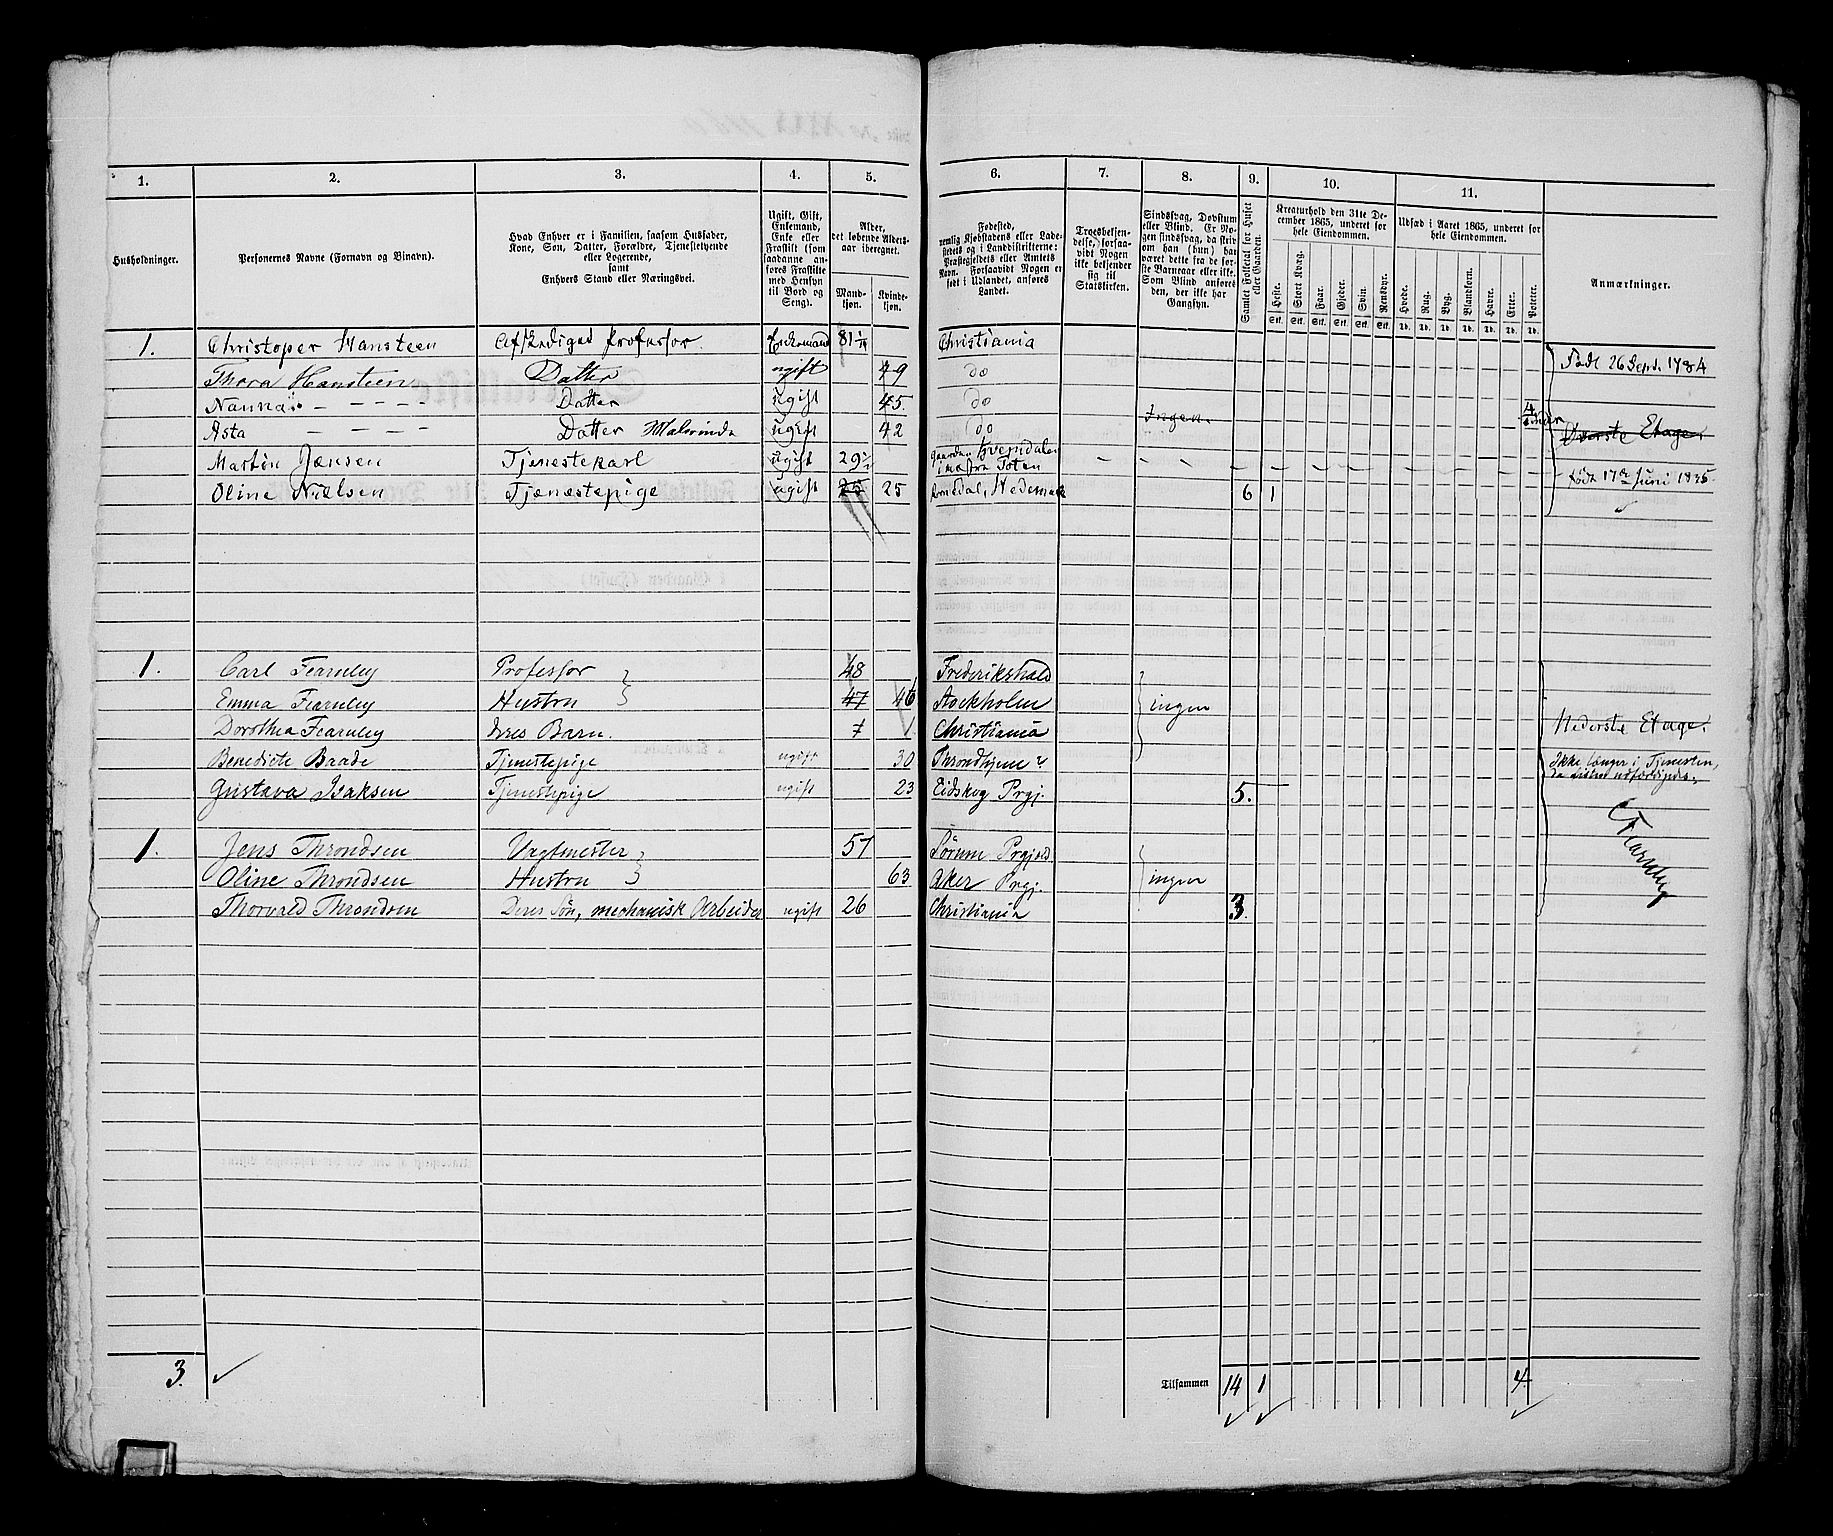 1. 2. 3. 4. 5. 6. 7. 8. 9. 10. 11.
Husholdninger.
Personernes Navne (Fornavn og Binavn).
Hvad Enhver er i Familien, saasom Husfader,
Kone, Søn, Datter, Forældre, Tjenestetyende
eller Logerende,
samt
Enhvers Stand eller Næringsvei.
Ugift, Gift,
Enkemand,
Enke eller
Fraskilt (som
saadanne an-
føres Fraskilte
med Hensyn
til Bord og
Seng).
Alder,
det løbende Alders-
aar iberegnet.
Mand-
kjøn.
Kvinde-
kjøn.
Fødested,
nemlig Kjøbstadens eller Lade-
stedets og i Landdistrikterne:
Præstegjeldets eller Amtets
Navn. Forsaavidt Nogen er
født i Udlandet, anføres
Landet.
Troesbekjen-
delse, forsaa-
vidt Nogen
ikke bekjender
sig til
Statskirken.
Sindssvag, Døvstum
eller Blind. Er No-
gen sindssvag, da skriv
om han (hun) har
været dette fra de før-
ste Barneaar eller ikke.
Som Blind anføres
den, der ikke har
Gangsyn.
Samlet Folketal for Huset
eller Gaarden.
Kreaturhold den 31te De-
cember 1865, underet for
hele Eiendommen.
Heste. Stort Kvæg. Faar. Gjeder. Svin. Rensdyr.
Stk. Stk. Stk. Stk. Stk. Stk.
Udsæd i Aaret 1865, underet for
hele Eiendommen.
Hvede. Rug. Byg. Blandkorn. Havre. Erter. Poteter.
Td. Td. Td. Td. Td. Td. Td.
Anmærkninger.
1. Christoper Hansteen Afskediget Professor. Enkemand 81 Christiania
Thora Hansteen Datter ugift 49 do Født 26 Sept. 1784
Nanna - - - - Datter ugift 45. do
Asta - - - - Datter Malerinde ugift 42 do Ingen. 4 Øverste Etage.
Martin Jensen Tjenestekarl ugift 29 Toten født 17de Juni
Oline Nielsen Tjenestepige ugift 25 25 Hedemark 6 1
1. Carl Fearnley Professor 48 Frederikshald
Emma Fearnley Hustru 47 46 Stockholm ingen
Dorothea Fearnley Deres Barn. 1 1 Christiania Nederste Etage.
Benedicte Baade Tjenestepige ugift 30 Throndhjem Ikke længer i Tjenesten,
da Listen udfærdiges.
Gustava Isaksen Tjenestepige ugift 23 Eidskog Prgj. 5.
Fearnley
1. Jens Throndsen Vagtmester 57 Sørum Prgjeld
Oline Throndsen Hustru 63 Aker Prgj. ingen
Thorvald Throndsen Deres Søn, mechanisk Arbeider ugift 26 Christiania 3.
3. Tilsammen 14 1 4.